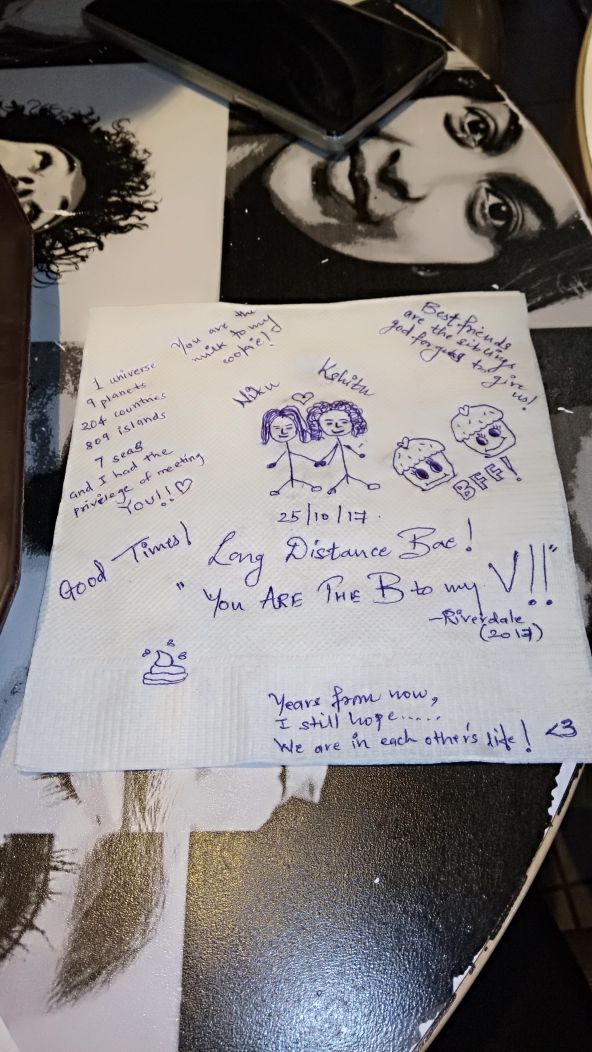 You are the
milk to my
cookie!
Best friends
are the siblings
god forgets to give
us!
1 universe
9 planets
204 countries
809 islands
7 seas
and I had the
privelege of meeting
YOU!!♡
Niku
Kshitu
BFF!
25/10/17.
Good Times!
Long Distance Bae!
"YOU ARE THE B to my V!!"
-Riverdale
(2017)
Years from now,
I still hope.....
We are in each other's life! <3